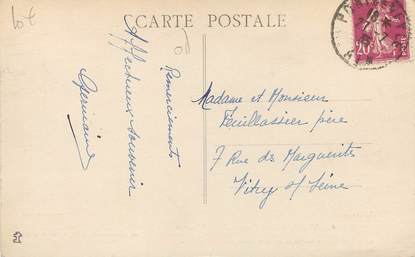 lot
CARTE POSTALE
20
Remerciements
Affectueux souvenir
Germaine
Madame et Monsieur
Feuillassier père
7 Rue de Marguerits
Vitry s/ Seine